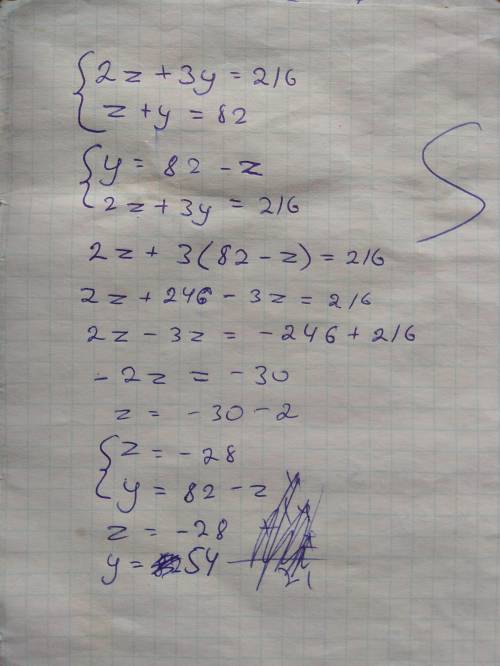 2z + 3y = 216
z + y = 82
y = 82 - z
2z + 3y = 216
2z + 3(82 - z) = 216
2z + 246 - 3z = 216
2z - 3z = -246 + 216
-2z = -30
z = -30 - 2
z = -28
y = 82 - z
z = -28
y = 54